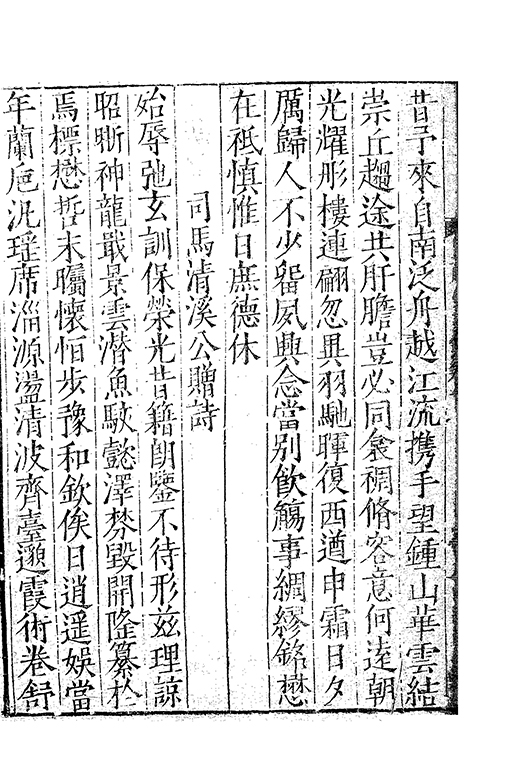 昔予來自南泛舟越江流携手望鍾山華雲結
崇丘趨途共肝膽豈必同衾禂脩容意何逺朝
光耀彤樓連翩忽異羽馳暉復西遒申霜日夕
厲歸人不少畱夙興念當别飲觴事綢繆銘懋
在祗慎惟日庶德休
司馬清溪公贈詩
始辱弛玄訓保榮光昔籍朗鑒不待形兹理諒
昭晰神龍戢景雲潛魚駭懿澤棼毀開隆纂於
焉標懋哲末矚懷怕步豫和欽俟日逍遥娛當
年蘭巵汎瑶席淄源盪清波齊臺邇霞術卷舒